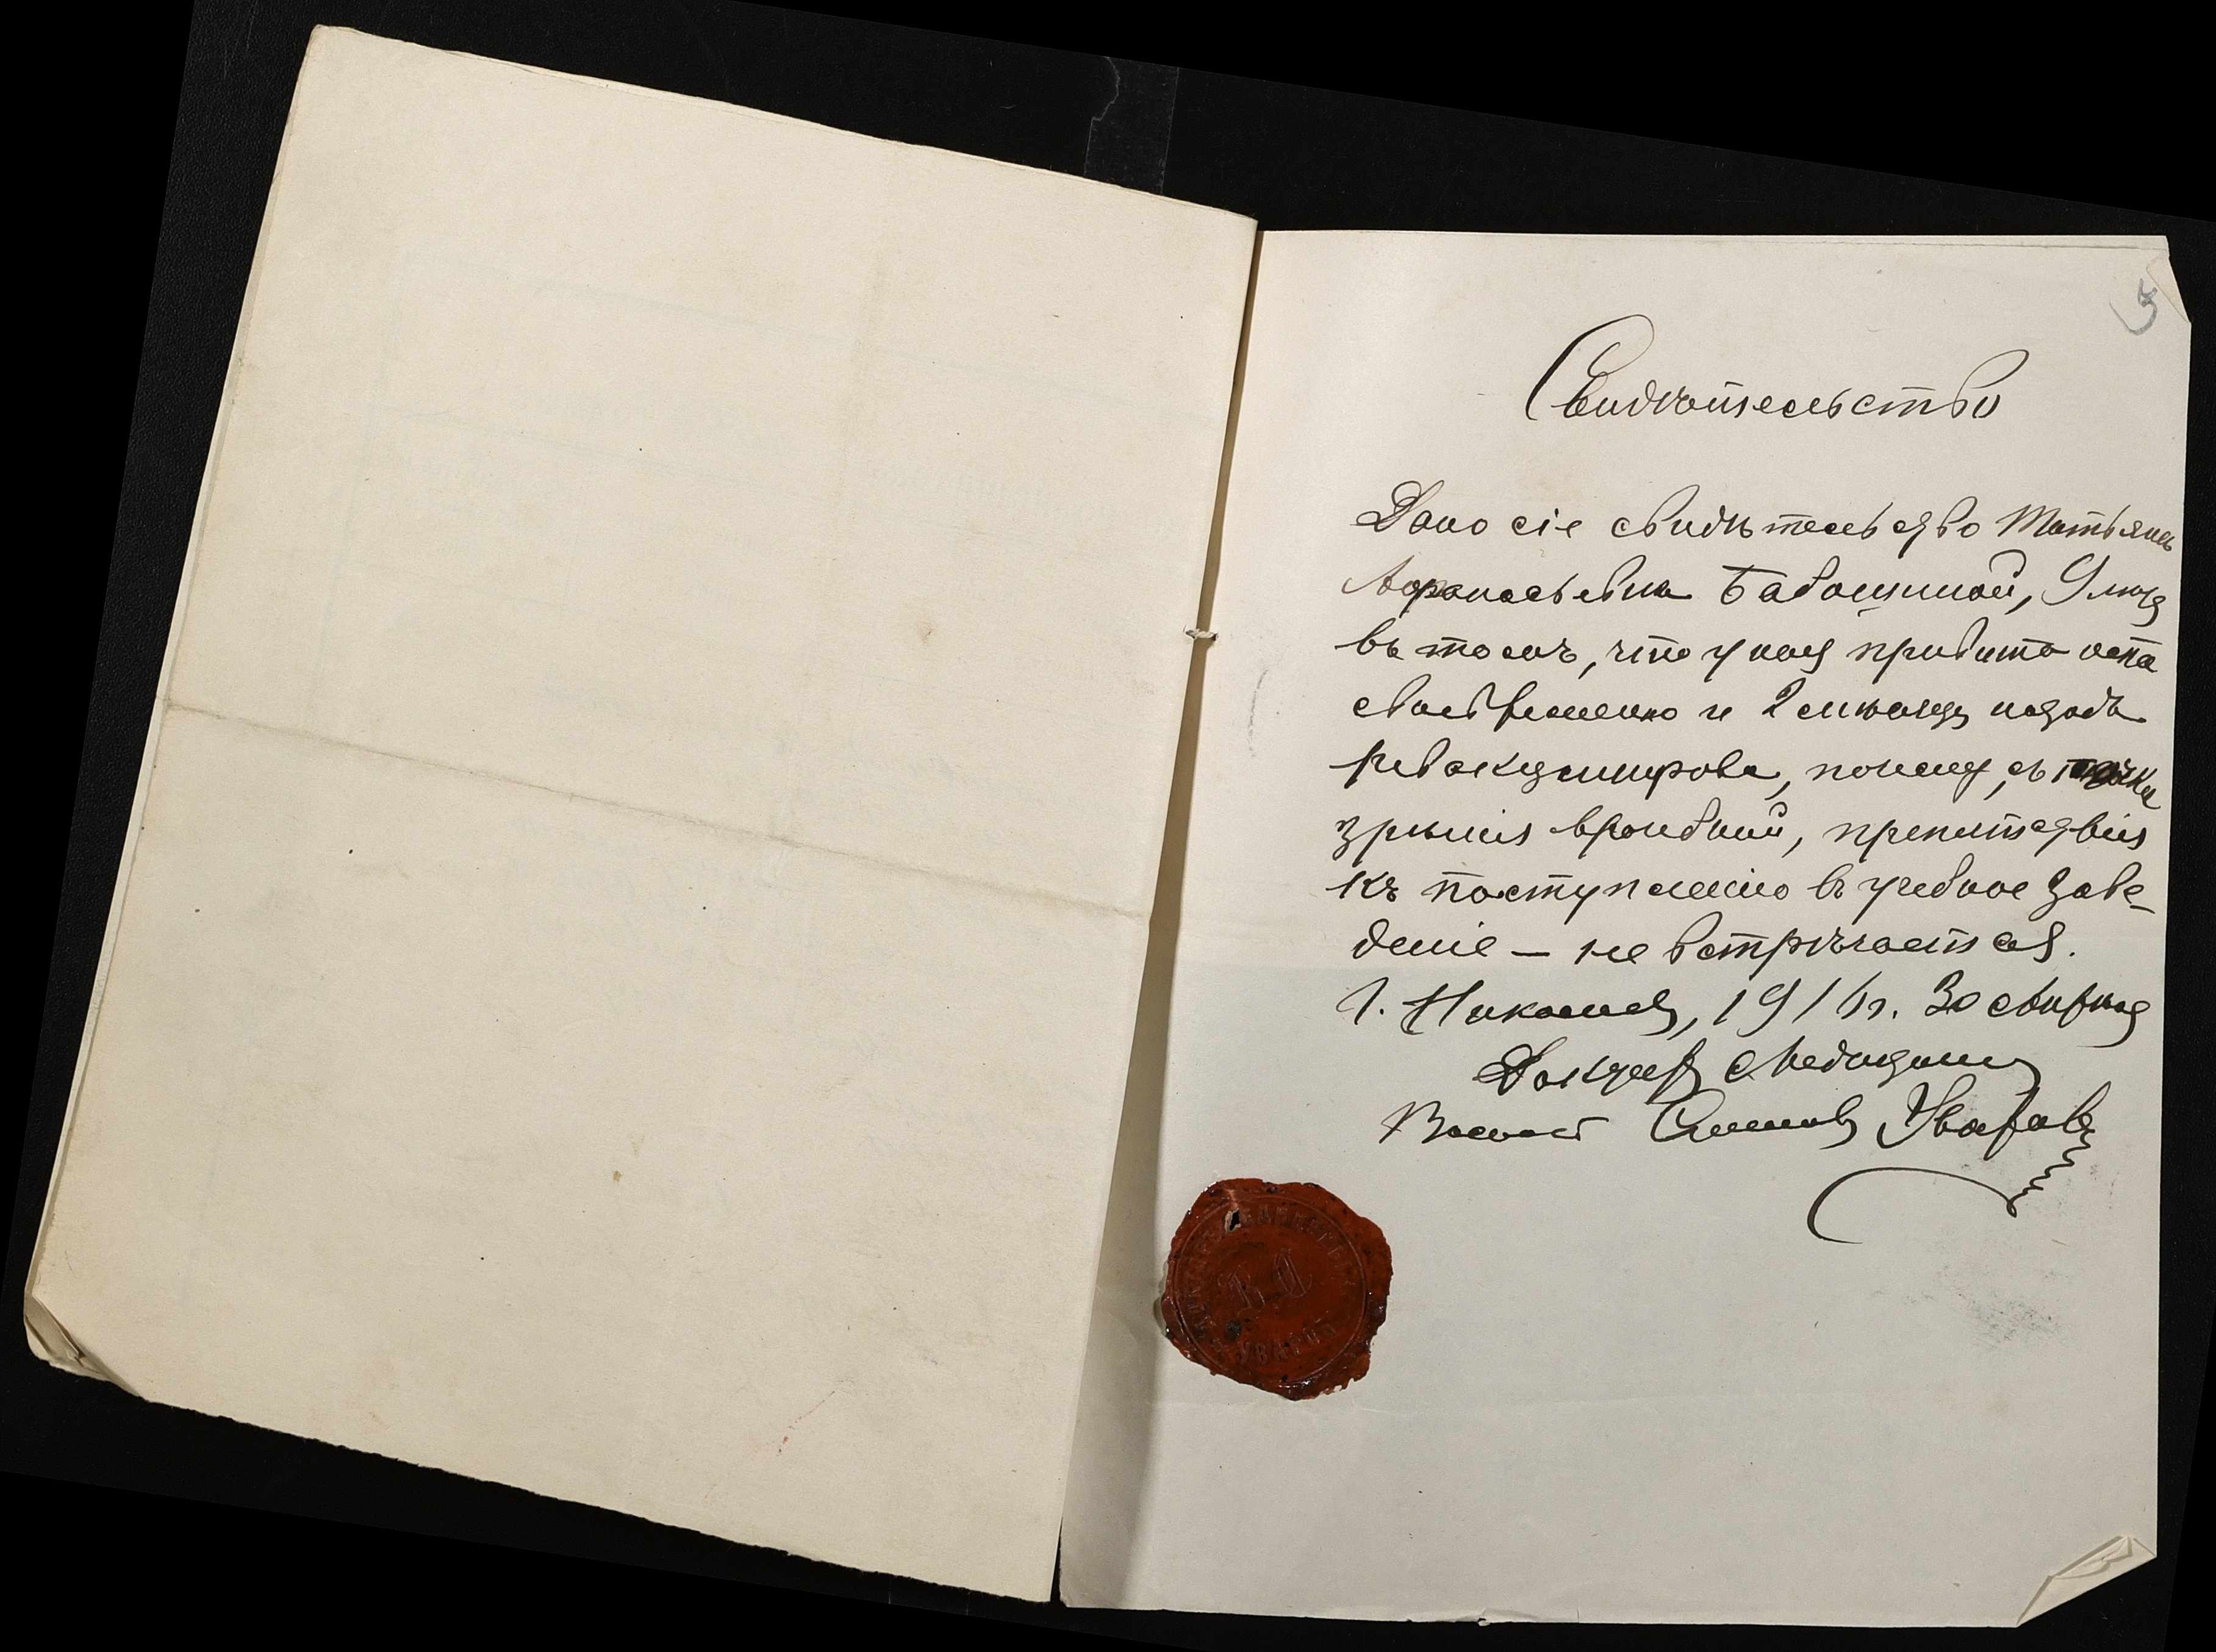 5
Свидѣтельство
Дано сіе свидѣтельство Татьянѣ
Афанасьевнѣ Бабошиной, 9 лѣтъ
въ томъ, что у ней привита оспа
своевременно и 2 мѣсяца назадъ
ревакцинирова, почему, съ точки
зрѣнія врачебной, препятствія
къ поступленію въ учебное заве-
деніе — не встрѣчается.
Г. Николаевъ, 1916 г. 30 априля
Докторъ Медицины
Уваровъ
В. С.
УВАРОВ